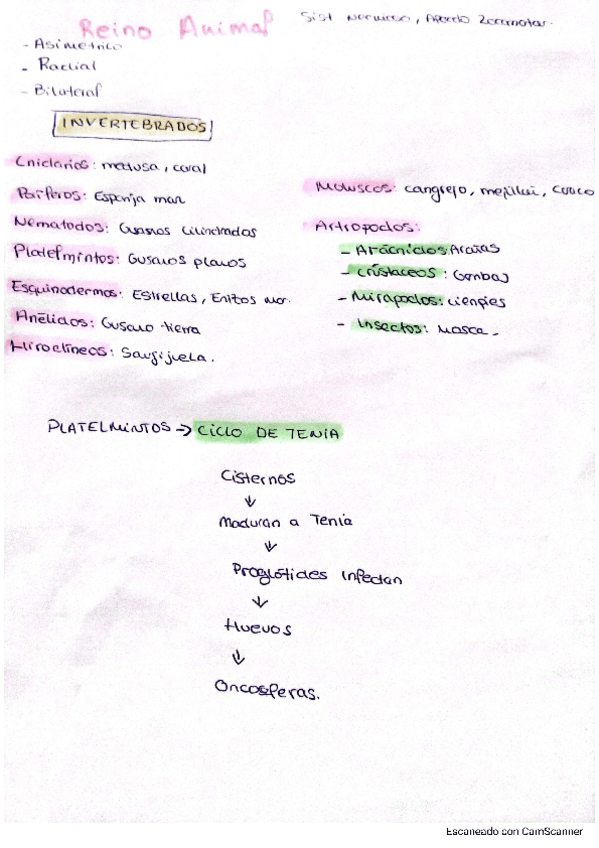 Reino Animal
Sist nervioso, Aparato Locomotor.
- Asimetrico
- Radial
- Bilateral
INVERTEBRADOS
Cnidarios: medusa, coral
Poríferos: Esponja mar
Nematodos: Gusanos cilindrados
Platelmintos: Gusanos planos
Esquinodermos: Estrellas, Erizos mar.
Anélidos: Gusano tierra
Hirudíneos: Sanguijuela.
Moluscos: cangrejo, mejillón,
Artropodos:
- Arácnidos: Arañas
- Crústaceos: Gambas
- Mirapodos: ciempies
- Insectos: mosca.
PLATELMINTOS → CICLO DE TENIA
Cisternos
↓
Maduran a Tenia
↓
Proglótides infectan
↓
Huevos
↓
Oncosferas.
Escaneado con CamScanner